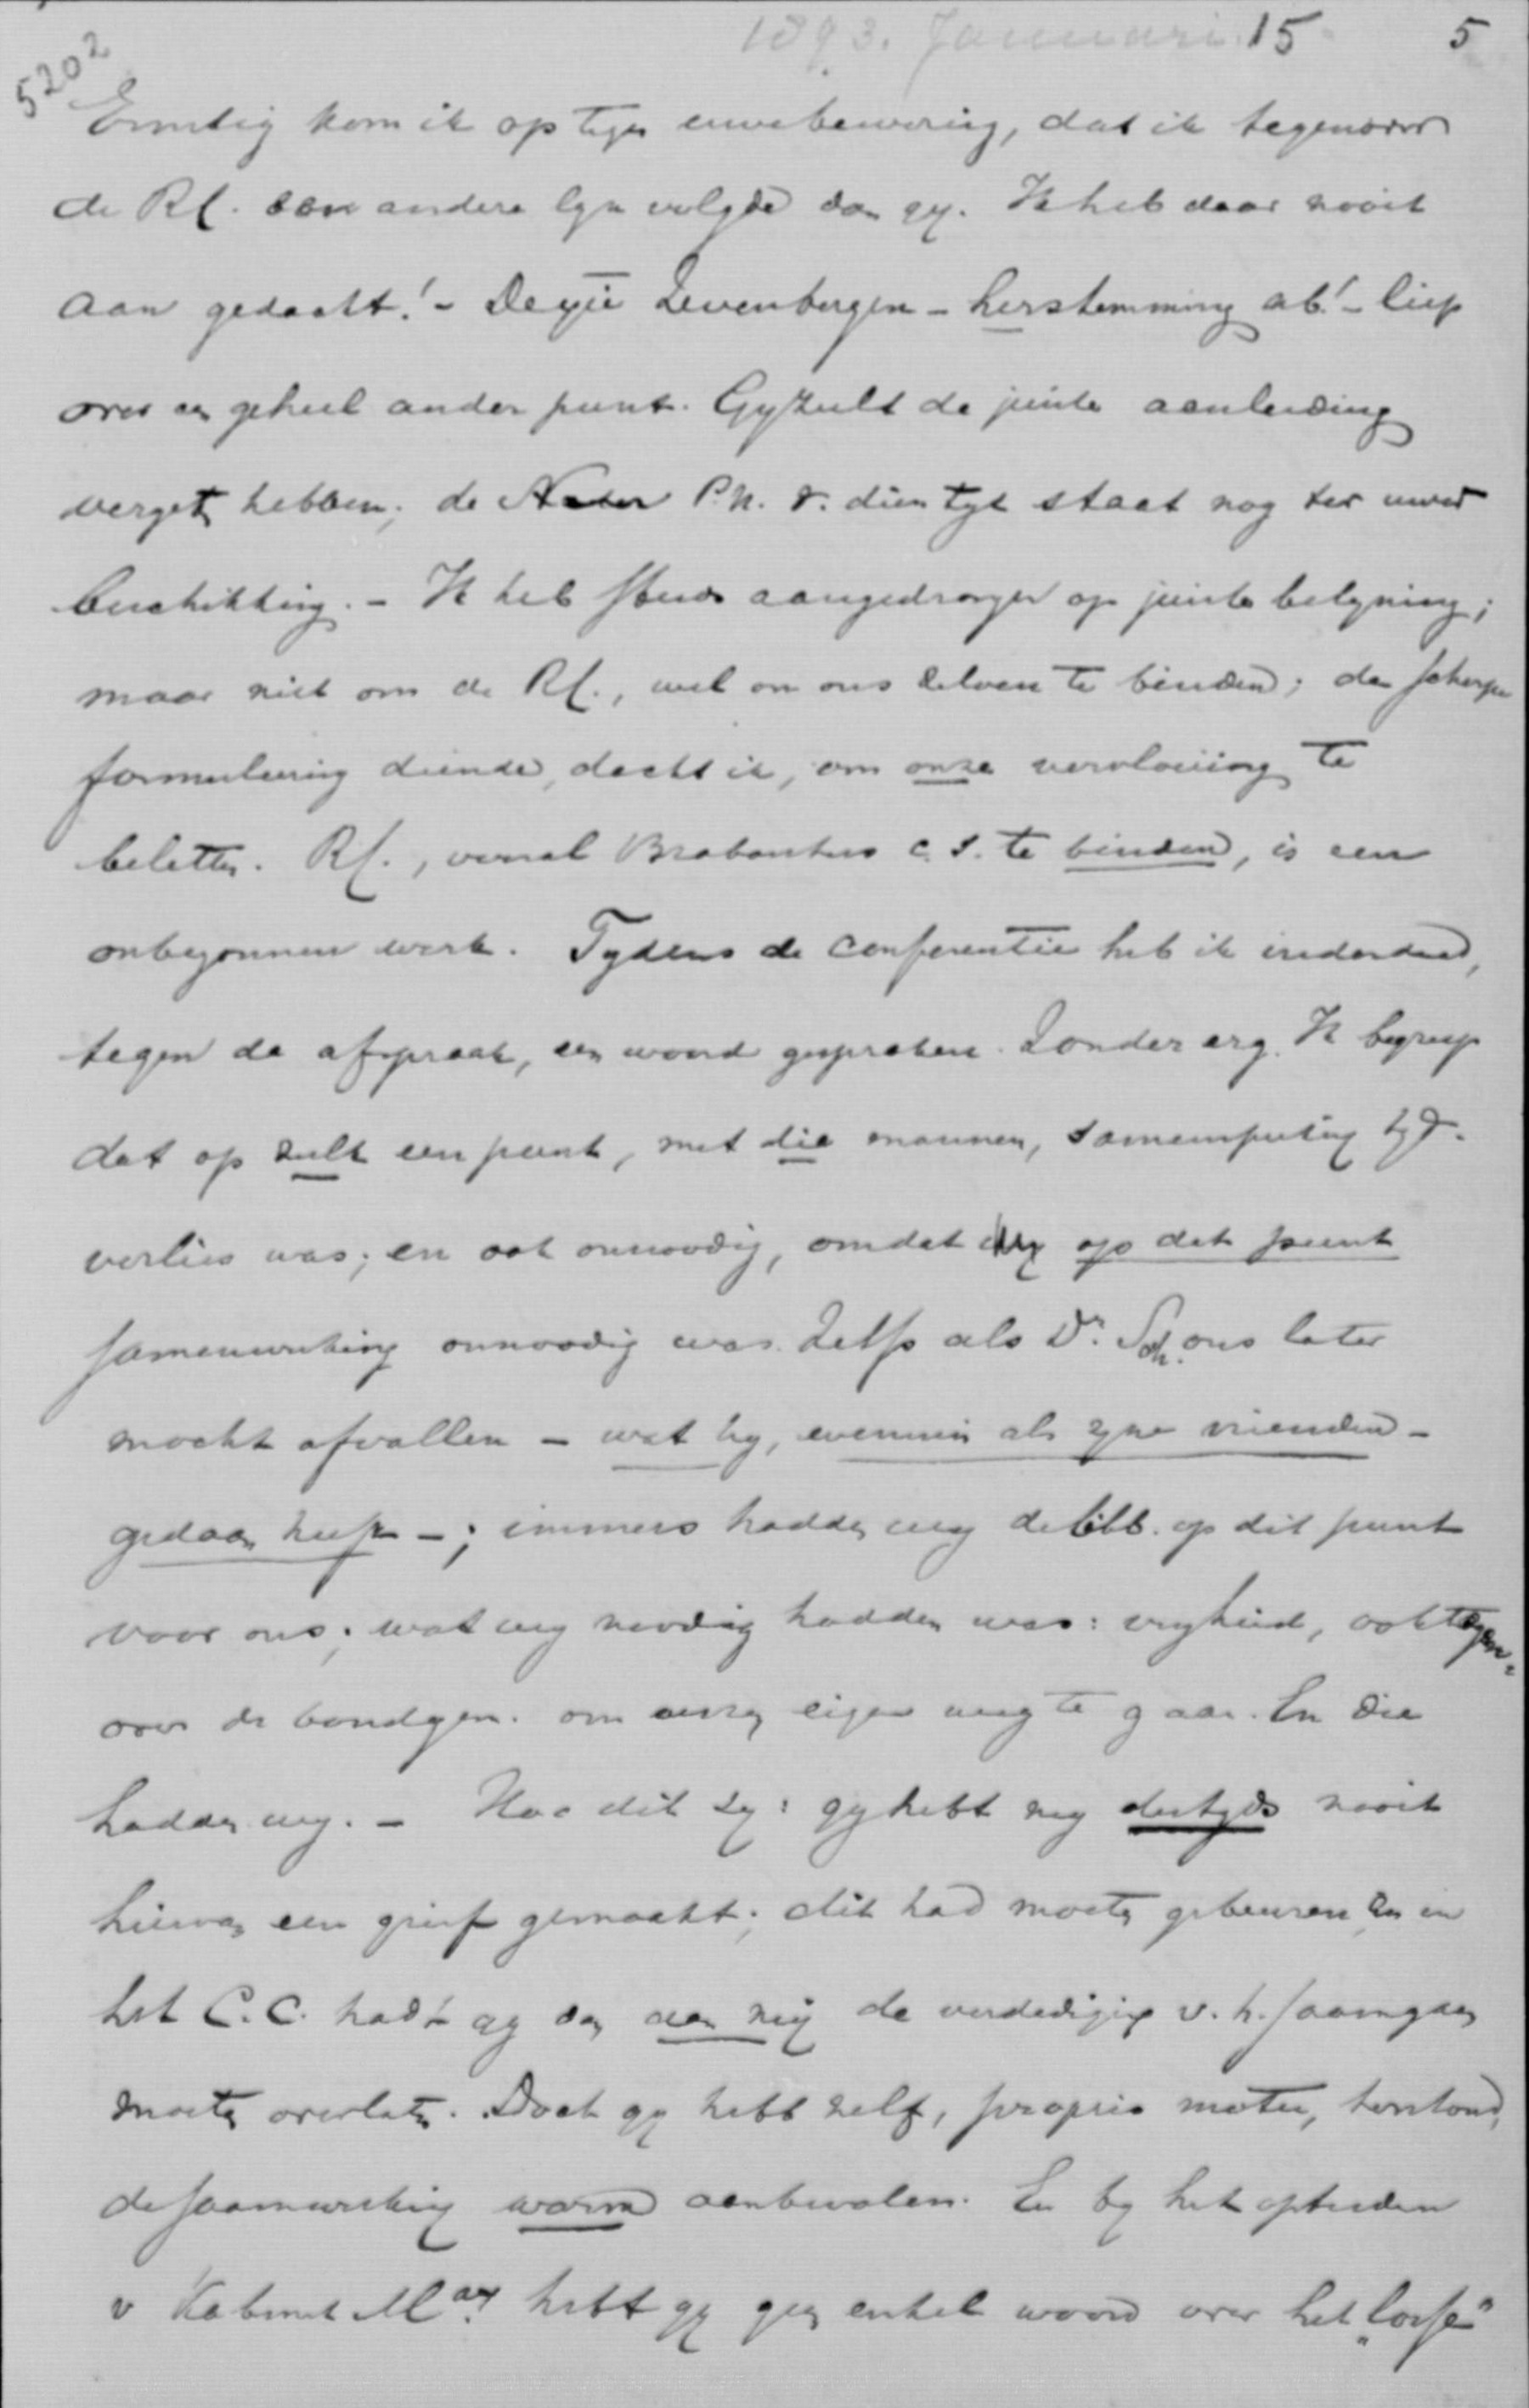 1893. Januari 15 5
5202
Ernstig kom ik op tegen uwe bewering, dat ik tegenover
de Rl. een andere lyn volgde dan gy. Ik heb daar nooit
aan gedacht! - De qu. Zevenbergen - herstemming ab! - liep
over een geheel ander punt. Gy zult de juiste aanleiding
verget. hebben; de P.n. v. dien tyd staat nog ter uwer
beschikking. - Ik heb steeds aangedrongen op juiste belyning;
maar niet om de Rl., wel om ons zelven te binden; de scherpe
formuleering diende, dacht ik, om onze vervloeiing te
beletten. Rl., vooral Brabanters c.s. te binden, is een
onbegonnen werk. Tydens de conferentie heb ik inderdaad,
tegen de afspraak, een woord gesproken. Zonder erg. Ik begreep
dat op zulk een punt, met die mannen, tyd-
verlies was; en ook onnoodig, omdat op dat punt
samenwerking onnoodig was. Zelfs als Dr. Sch. ons later
mocht afvallen - wat hy, evenmin als zyne vrienden -
gedaan heeft -; immers hadden wy de libb. op dit punt
voor ons; wat wy noodig hadden was: vryheid, ook tegen-
over de bondgen. om onzen eigen weg te gaan. En die
hadden wy. - Hoe dit zy: gy hebt my destyds nooit
hiervan een grief gemaakt; dit had moeten gebeuren en in
het C.C. hadt gy dan aan my de verdediging v. h. saamgaan
moeten overlaten. Doch gy hebt zelf, proprio motu, terstond,
de saamwerking warm aanbevolen. En by het optreden
v Kabinet May hebt gy geen enkel woord over het "losse"